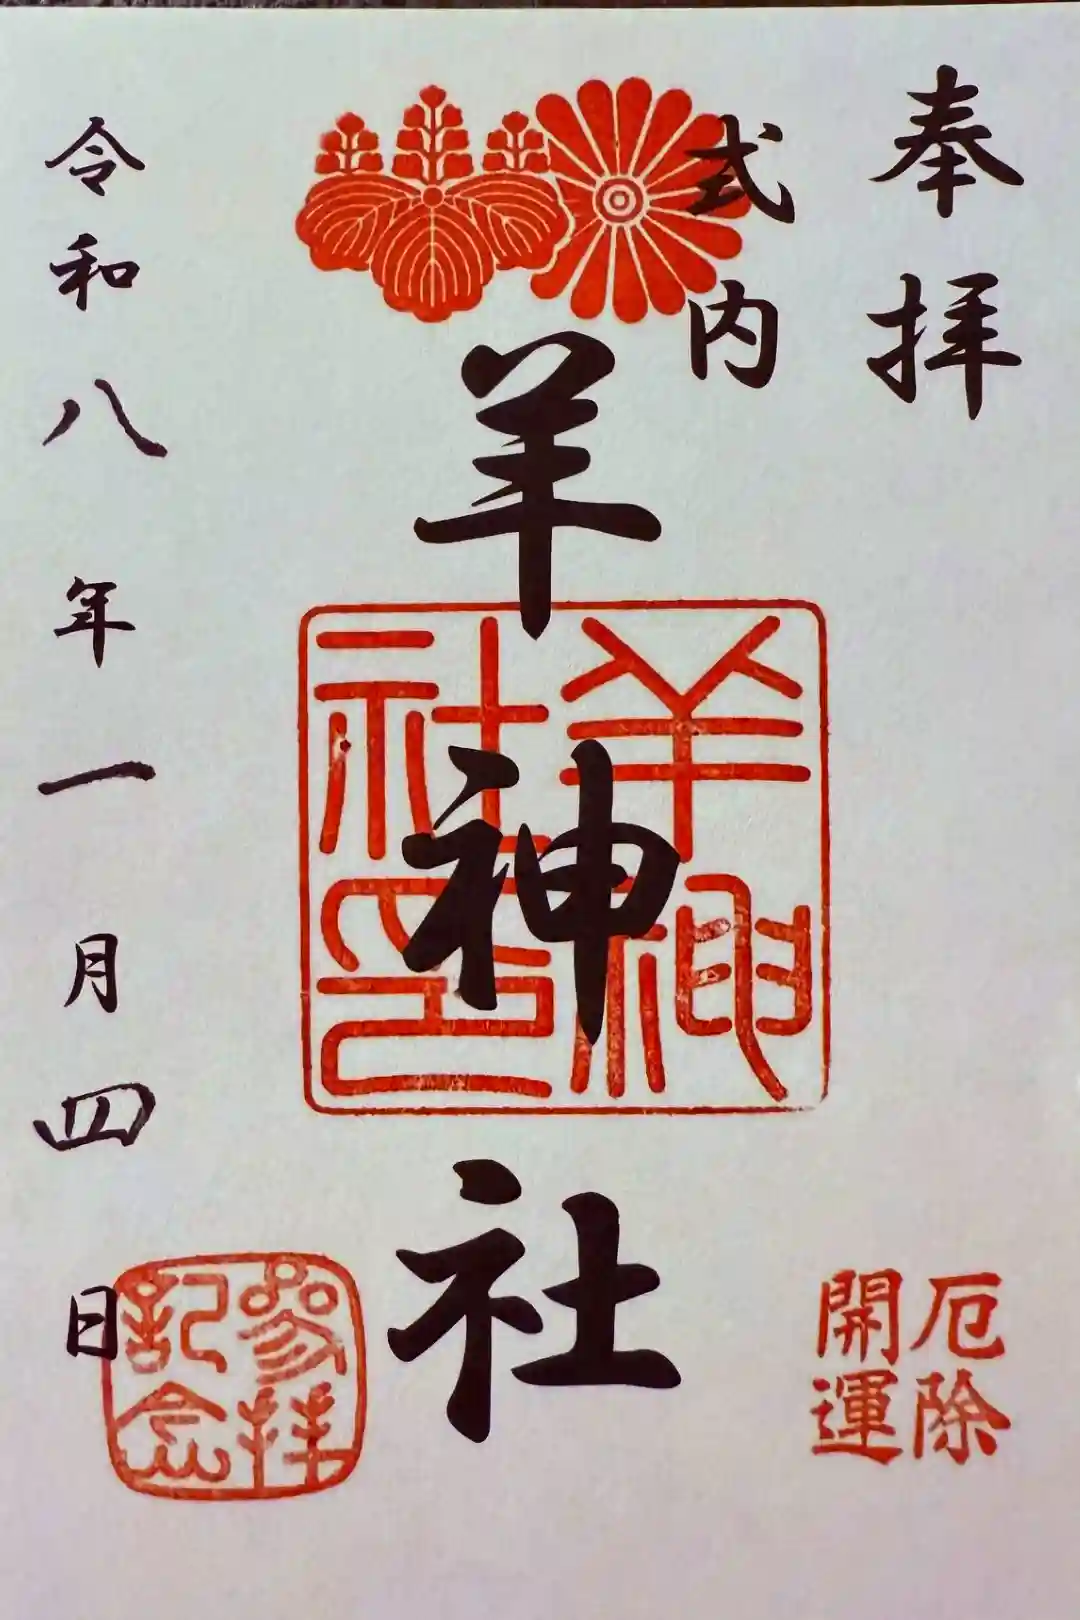 奉拝
式内
羊神社
令和八年一月四日
羊神
社印
厄除
開運
参拝
記念